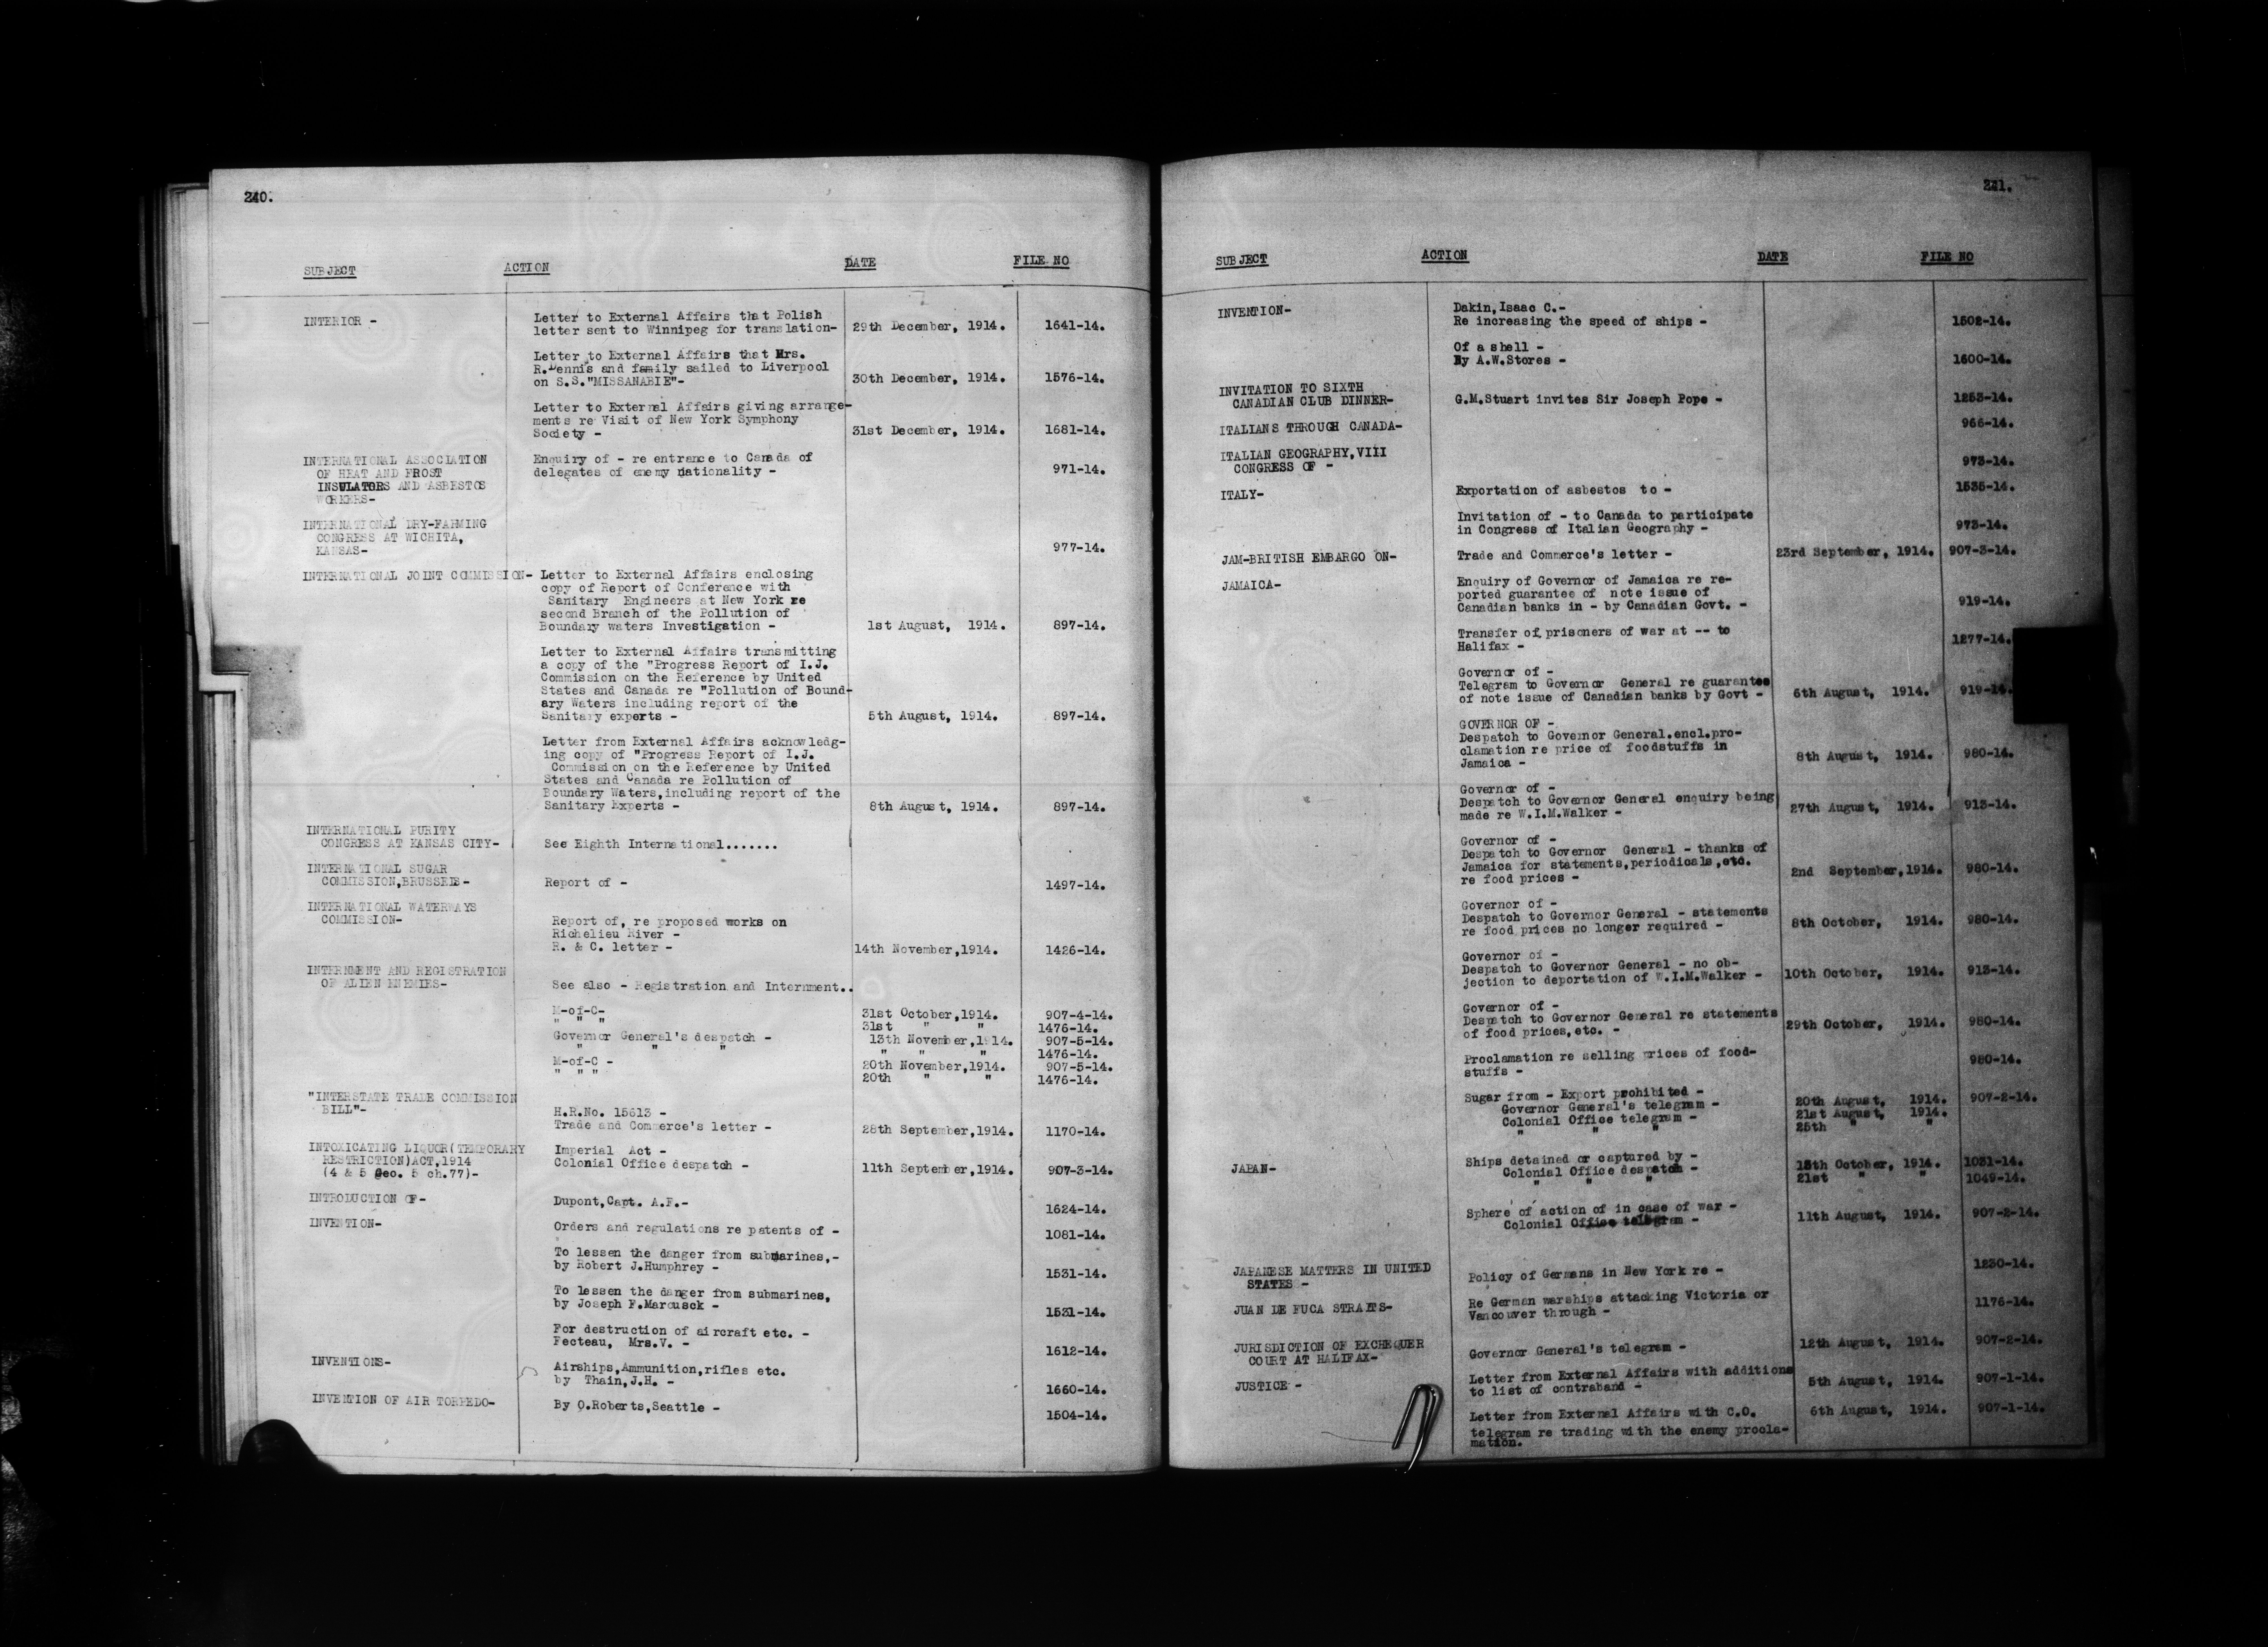 240.
SUBJECT ACTION DATE FILE NO
INTERIOR - Letter to External Affairs that Polish
letter sent to Winnipeg for translation- 29th December, 1914. 1641-14.
Letter to External Affairs that Mrs.
R.Dennis and family sailed to Liverpool
on S.S."MISSANABIE"- 30th December, 1914. 1576-14.
Letter to External Affairs giving arrange-
ments re Visit of New York Symphony
Society - 31st December, 1914. 1681-14.
INTERNATIONAL ASSOCIATION Enquiry of - re entrance to Canada of
OF HEAT AND FROST delegates of enemy nationality - 971-14.
INSULATORS AND ASBESTOS
WORKERS-
INTERNATIONAL DRY-FARMING
CONGRESS AT WICHITA,
KANSAS- 977-14.
INTERNATIONAL JOINT COMMISSION- Letter to External Affairs enclosing
copy of Report of Conference with
Sanitary Engineers at New York re
second Branch of the Pollution of
Boundary waters Investigation - 1st August, 1914. 897-14.
Letter to External Affairs transmitting
a copy of the "Progress Report of I.J.
Commission on the Reference by United
States and Canada re "Pollution of Bound-
ary Waters including report of the
Sanitary experts - 5th August, 1914. 897-14.
Letter from External Affairs acknowledg-
ing copy of "Progress Report of I.J.
Commission on the Reference by United
States and Canada re Pollution of
Boundary Waters,including report of the
Sanitary Experts - 8th August, 1914. 897-14.
INTERNATIONAL PURITY
CONGRESS AT KANSAS CITY- See Eighth International.......
INTERNATIONAL SUGAR
COMMISSION,BRUSSELS- Report of - 1497-14.
INTERNATIONAL WATERWAYS
COMMISSION- Report of, re proposed works on
Richelieu River -
R. & C. letter - 14th November,1914. 1426-14.
INTERNMENT AND REGISTRATION
OF ALIEN ENEMIES- See also - Registration and Internment..
M-of-C- 31st October,1914. 907-4-14.
" " " 31st " " 1476-14.
Governor General's despatch - 13th November,1914. 907-5-14.
" " " " " " 1476-14.
M-of-C - 20th November,1914. 907-5-14.
" " " 20th " " 1476-14.
"INTERSTATE TRADE COMMISSION
BILL"- H.R.No. 15613 -
Trade and Commerce's letter - 28th September,1914. 1170-14.
INTOXICATING LIQUOR(TEMPORARY Imperial Act -
RESTRICTION)ACT,1914 Colonial Office despatch - 11th September,1914. 907-3-14.
(4 & 5 Geo. 5 ch.77)-
INTRODUCTION OF- Dupont,Capt. A.F.- 1624-14.
INVENTION- Orders and regulations re patents of - 1081-14.
To lessen the danger from submarines,-
by Robert J.Humphrey - 1531-14.
To lessen the danger from submarines,
by Joseph F.Marcusck - 1531-14.
For destruction of aircraft etc. -
Fecteau, Mrs.V. - 1612-14.
INVENTIONS- Airships,Ammunition,rifles etc.
by Thain,J.H. - 1660-14.
INVENTION OF AIR TORPEDO- By O.Roberts,Seattle - 1504-14.
241.
SUBJECT ACTION DATE FILE NO
INVENTION- Dakin,Isaac C.-
Re increasing the speed of ships - 1502-14.
Of a shell -
By A.W.Stores - 1600-14.
INVITATION TO SIXTH
CANADIAN CLUB DINNER- G.M.Stuart invites Sir Joseph Pope - 1253-14.
ITALIANS THROUGH CANADA- 966-14.
ITALIAN GEOGRAPHY,VIII
CONGRESS OF - 973-14.
ITALY- Exportation of asbestos to - 1535-14.
Invitation of - to Canada to participate
in Congress of Italian Geography - 973-14.
JAM-BRITISH EMBARGO ON- Trade and Commerce's letter - 23rd September, 1914. 907-3-14.
JAMAICA- Enquiry of Governor of Jamaica re re-
ported guarantee of note issue of
Canadian banks in - by Canadian Govt. - 919-14.
Transfer of prisoners of war at -- to
Halifax - 1277-14.
Governor of -
Telegram to Governor General re guarantee
of note issue of Canadian banks by Govt - 6th August, 1914. 919-14.
GOVERNOR OF -
Despatch to Governor General.encl.pro-
clamation re price of foodstuffs in
Jamaica - 8th August, 1914. 980-14.
Governor of -
Despatch to Governor General enquiry being
made re W.I.M.Walker - 27th August, 1914. 913-14.
Governor of -
Despatch to Governor General - thanks of
Jamaica for statements,periodicals,etc.
re food prices - 2nd September,1914. 980-14.
Governor of -
Despatch to Governor General - statements
re food prices no longer required - 8th October, 1914. 980-14.
Governor of -
Despatch to Governor General - no ob-
jection to deportation of W.I.M.Walker - 10th October, 1914. 913-14.
Governor of -
Despatch to Governor General re statements
of food prices,etc. - 29th October, 1914. 980-14.
Proclamation re selling prices of food-
stuffs - 980-14.
Sugar from - Export prohibited -
Governor General's telegram - 20th August, 1914. 907-2-14.
Colonial Office telegram - 21st August, 1914.
" " " 25th " "
JAPAN- Ships detained or captured by -
Colonial Office despatch - 15th October, 1914. 1031-14.
" " " 21st " " 1049-14.
Sphere of action of in case of war -
Colonial Office telegram - 11th August, 1914. 907-2-14.
JAPANESE MATTERS IN UNITED
STATES - Policy of Germans in New York re - 1230-14.
JUAN DE FUCA STRAITS- Re German warships attacking Victoria or
Vancouver through - 1176-14.
JURISDICTION OF EXCHEQUER
COURT AT HALIFAX- Governor General's telegram - 12th August, 1914. 907-2-14.
JUSTICE - Letter from External Affairs with additions
to list of contraband - 5th August, 1914. 907-1-14.
Letter from External Affairs with C.O. 6th August, 1914. 907-1-14.
telegram re trading with the enemy procla-
mation.